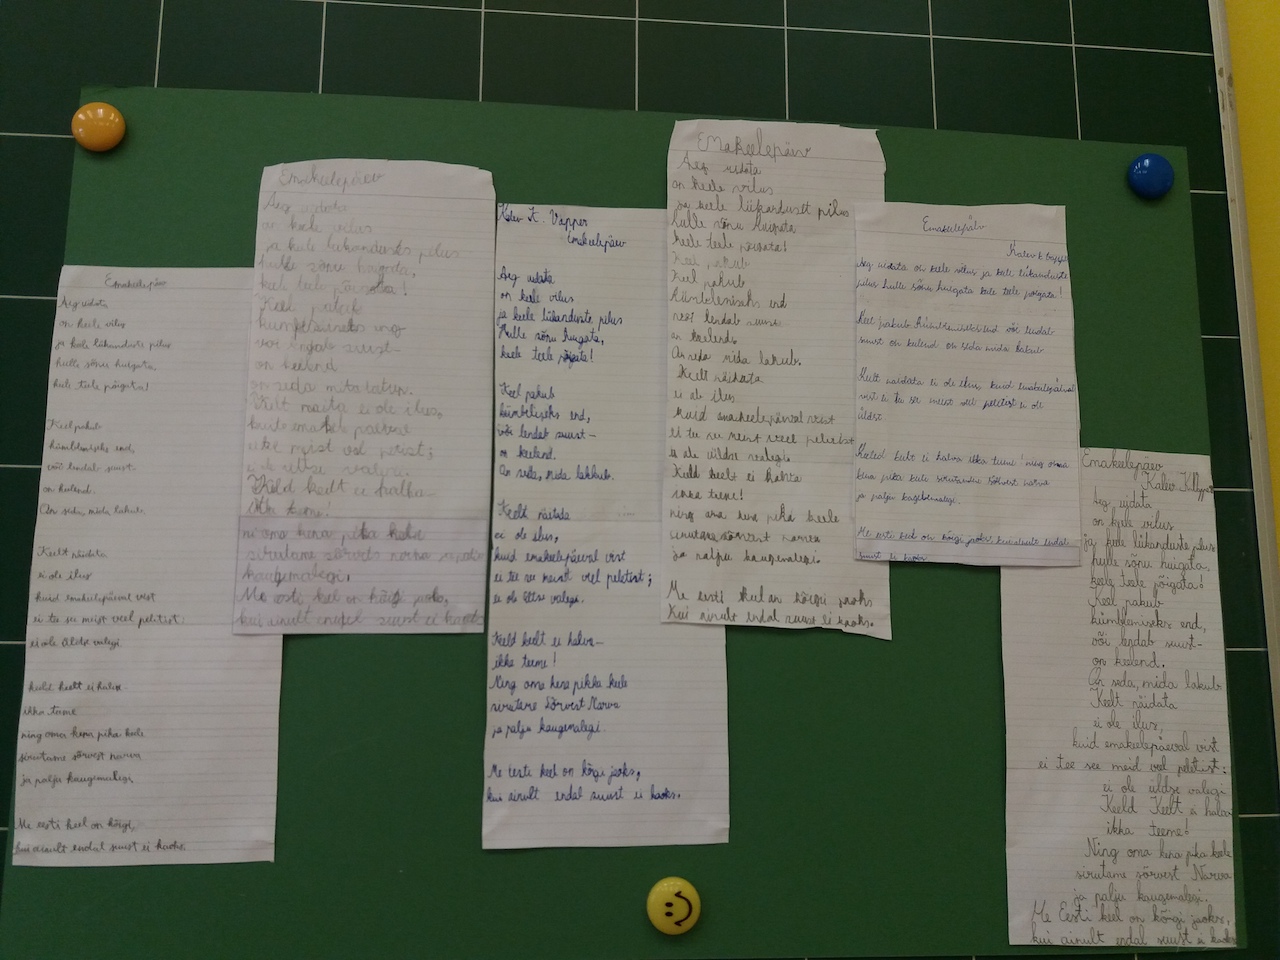 Emakeelepäe
Aeg uidata
on keele vilus
ja keele lükanduste pilus
hulle sõnu huigata,
keele teele põigata!
Keel pakub
kümblemiseks end,
või lendab suust-
on keelend.
On seda mida lakub.
Keelt näidata
ei ole ilus
kuid emakeelepäeval vist
ei tee see meist veel peletist:
ei ole üldse valegi.
keeld keelt ei halva-
ikka teeme
ning oma kena pika keele
sirutame sõrvest narva
ja palju kaugemalegi.
Me eesti keel on kõigi,
kui ainult endal suust ei kaoks.
Emakeelepäev
Aeg uidata
on keele vilus
ja keele lükanduste pilus
hulle sõnu huigata,
keele teele põigata!
Keel pakub
on keelend
on seda mita
Kelt naita ei ole ilus,
Keeld keelt ei halba-
ikka teeme!
ni oma kena pika keele
kaugemalegi.
Me eesti keel on kõigi jaoks,
kui ainult endal suust ei kaoks
Kalev K. Vapper
Emakeelepäev
Aeg uidata
on keele vilus
ja keele lükanduste pilus
Hulle sõnu huigata,
keele teele põigata!
Keel pakub
kümbliseks end,
või lendab suust-
on keelend.
On seda, mida lakkub.
Keelt näidata
ei ole ilus,
kuid emakeelepäeval vist
ei tee see meist veel peletist;
ei ole üldse valegi.
Keeld keelt ei halva-
ikka teeme!
Ning oma kena pikka keele
sirutame Sõrvest Narva
ja palju kaugemalegi.
Me eesti keel on kõigi jaoks,
kui ainult endal suust ei kaoks.
Emakeelepäiv
Aeg uidata
on keele vilus
ja keele lükanduset pilus
hulle sõnu huigata
keele teele põigata!
Keel pakub
Keel pakub
kümblemiseks end
lendab suust
on keelend.
On seda mida lakub.
Keelt näidata
ei ole ilus
kuid emakeelepäeval vist
et tee see meist veel peletist
ei ole üldse valegi
Keeld keelt ei halva
ikka teeme!
ning oma kena pika keele
sirutame narva
ja palju kaugemalegi.
Me eesti keel on kõigi jaoks
Kui ainult endal suust ei kaoks.
Emakeelepäev
Kalev K
Aeg uidata on keele vilus ja keele lükanduste
pilus hulle sõnu huigata keele teele põigata!
Keel pakub või lendab
suust on keelend on seda mida lakub
Keelt naidata ei ole ilus, kuid emakeelepäival
vist ei ta see meist veel peletist ei ole
üldst.
Keeled keelt ei halva ikka teeme! ning oma
kena pika keele sirutame sõrvest narva
ja palju kagemalegi.
Me eesti keel on kõigi jaoks kuiainult endal
suust ei kaoks
Emakeelepäev
Kalev K
Aeg uidata
on keele vilus
ja keele lükanduste pilus
hulle sõnu huigata,
keele teele põigata!
Keel pakub
kümblemiseks end,
või lendab suust-
on keelend.
On seda, mida lakub
Keelt näidata
ei ole ilus,
kuid emakeelepäeval vist
ei tee see meid veel peletist:
ei ole üldse valegi
Keeld Keelt ei halva
ikka teeme!
Ning oma kena pika keele
sirutame sõrvest Narva
ja palju kaugemalegi.
Me Eesti keel on kõigi jaoks,
kui ainult endal suust ei kaoks